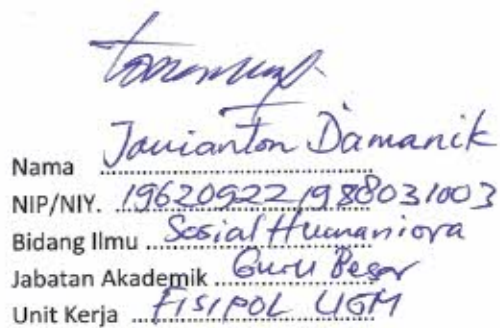 Nama Janianton Damanik
NIP/NIY. 196209221988031003
Bidang Ilmu Sosial Humaniora
Jabatan Akademik Guru Besar
Unit Kerja FISIPOL UGM